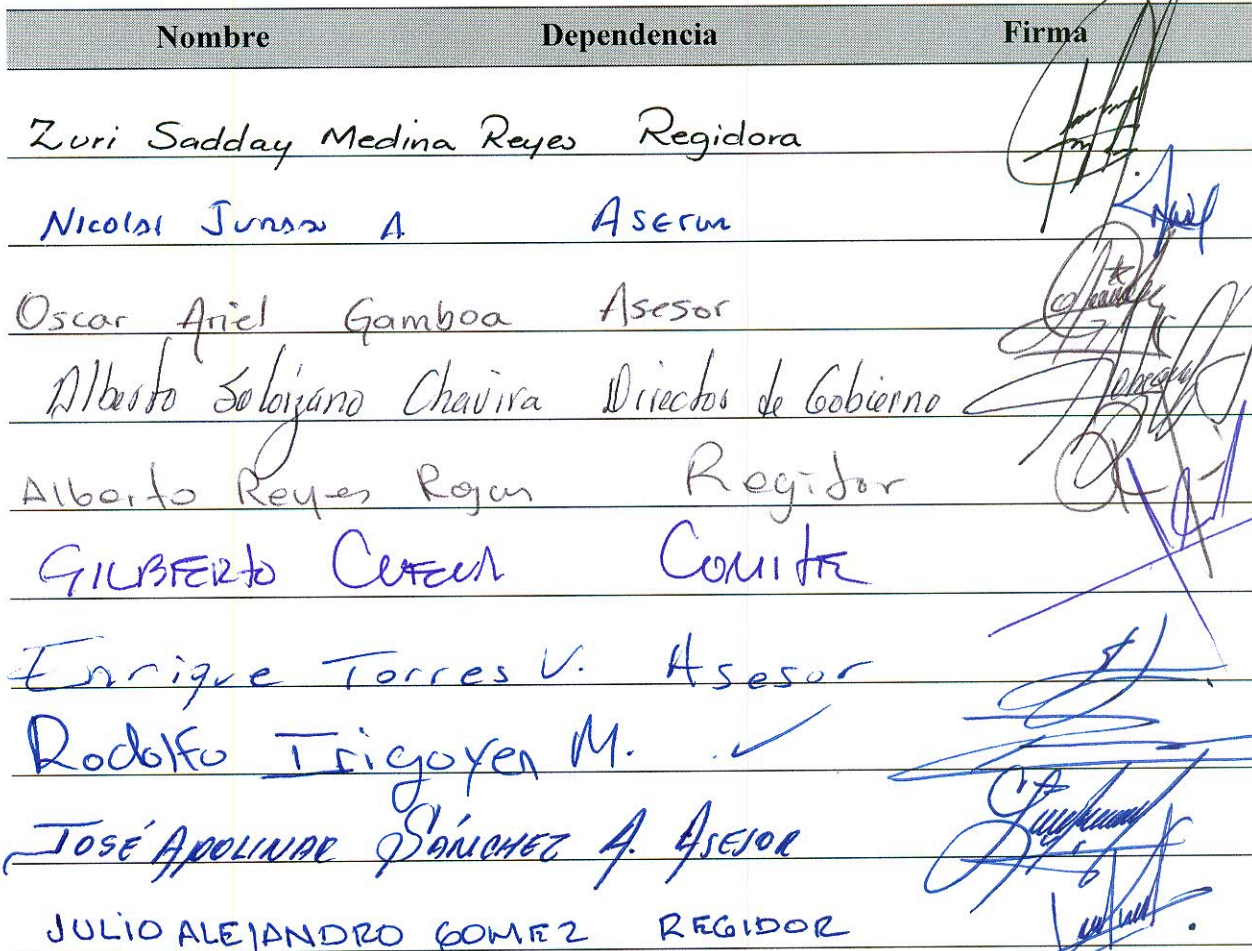 Nombre Dependencia Firma
Zuri Sadday Medina Reyes Regidora
A
Oscar Ariel Gamboa Asesor
Alberto Solorzano Chavira Director de Gobierno
Alberto Reyes Rojas Regidor
GILBERTO COMITE
Enrique Torres V. Asesor
Rodolfo Irigoyen M. ✓
JOSÉ APOLINAR SÁNCHEZ A. ASESOR
JULIO ALEJANDRO GOMEZ REGIDOR